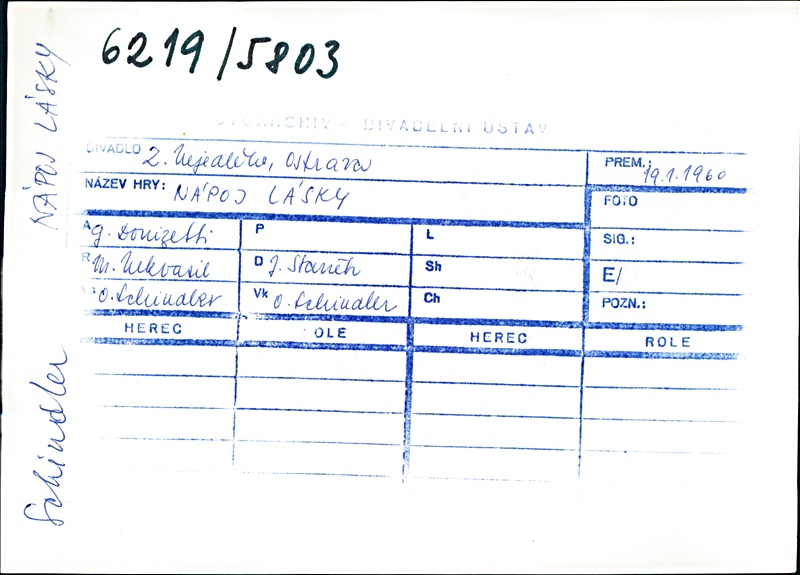 6219/5803
NÁPOJ LÁSKY
Schindler
DIVADELNÍ ÚSTAV
DIVADLO Z. Nejedlého, Ostrava
PREM.: 19.1.1960
NÁZEV HRY: NÁPOJ LÁSKY
FOTO
A G. Donizetti P L SIG.:
R M. Nekvasil D J. Staněk Sh E/
O. Schindler Vk O. Schindler Ch POZN.:
HEREC ROLE HEREC ROLE